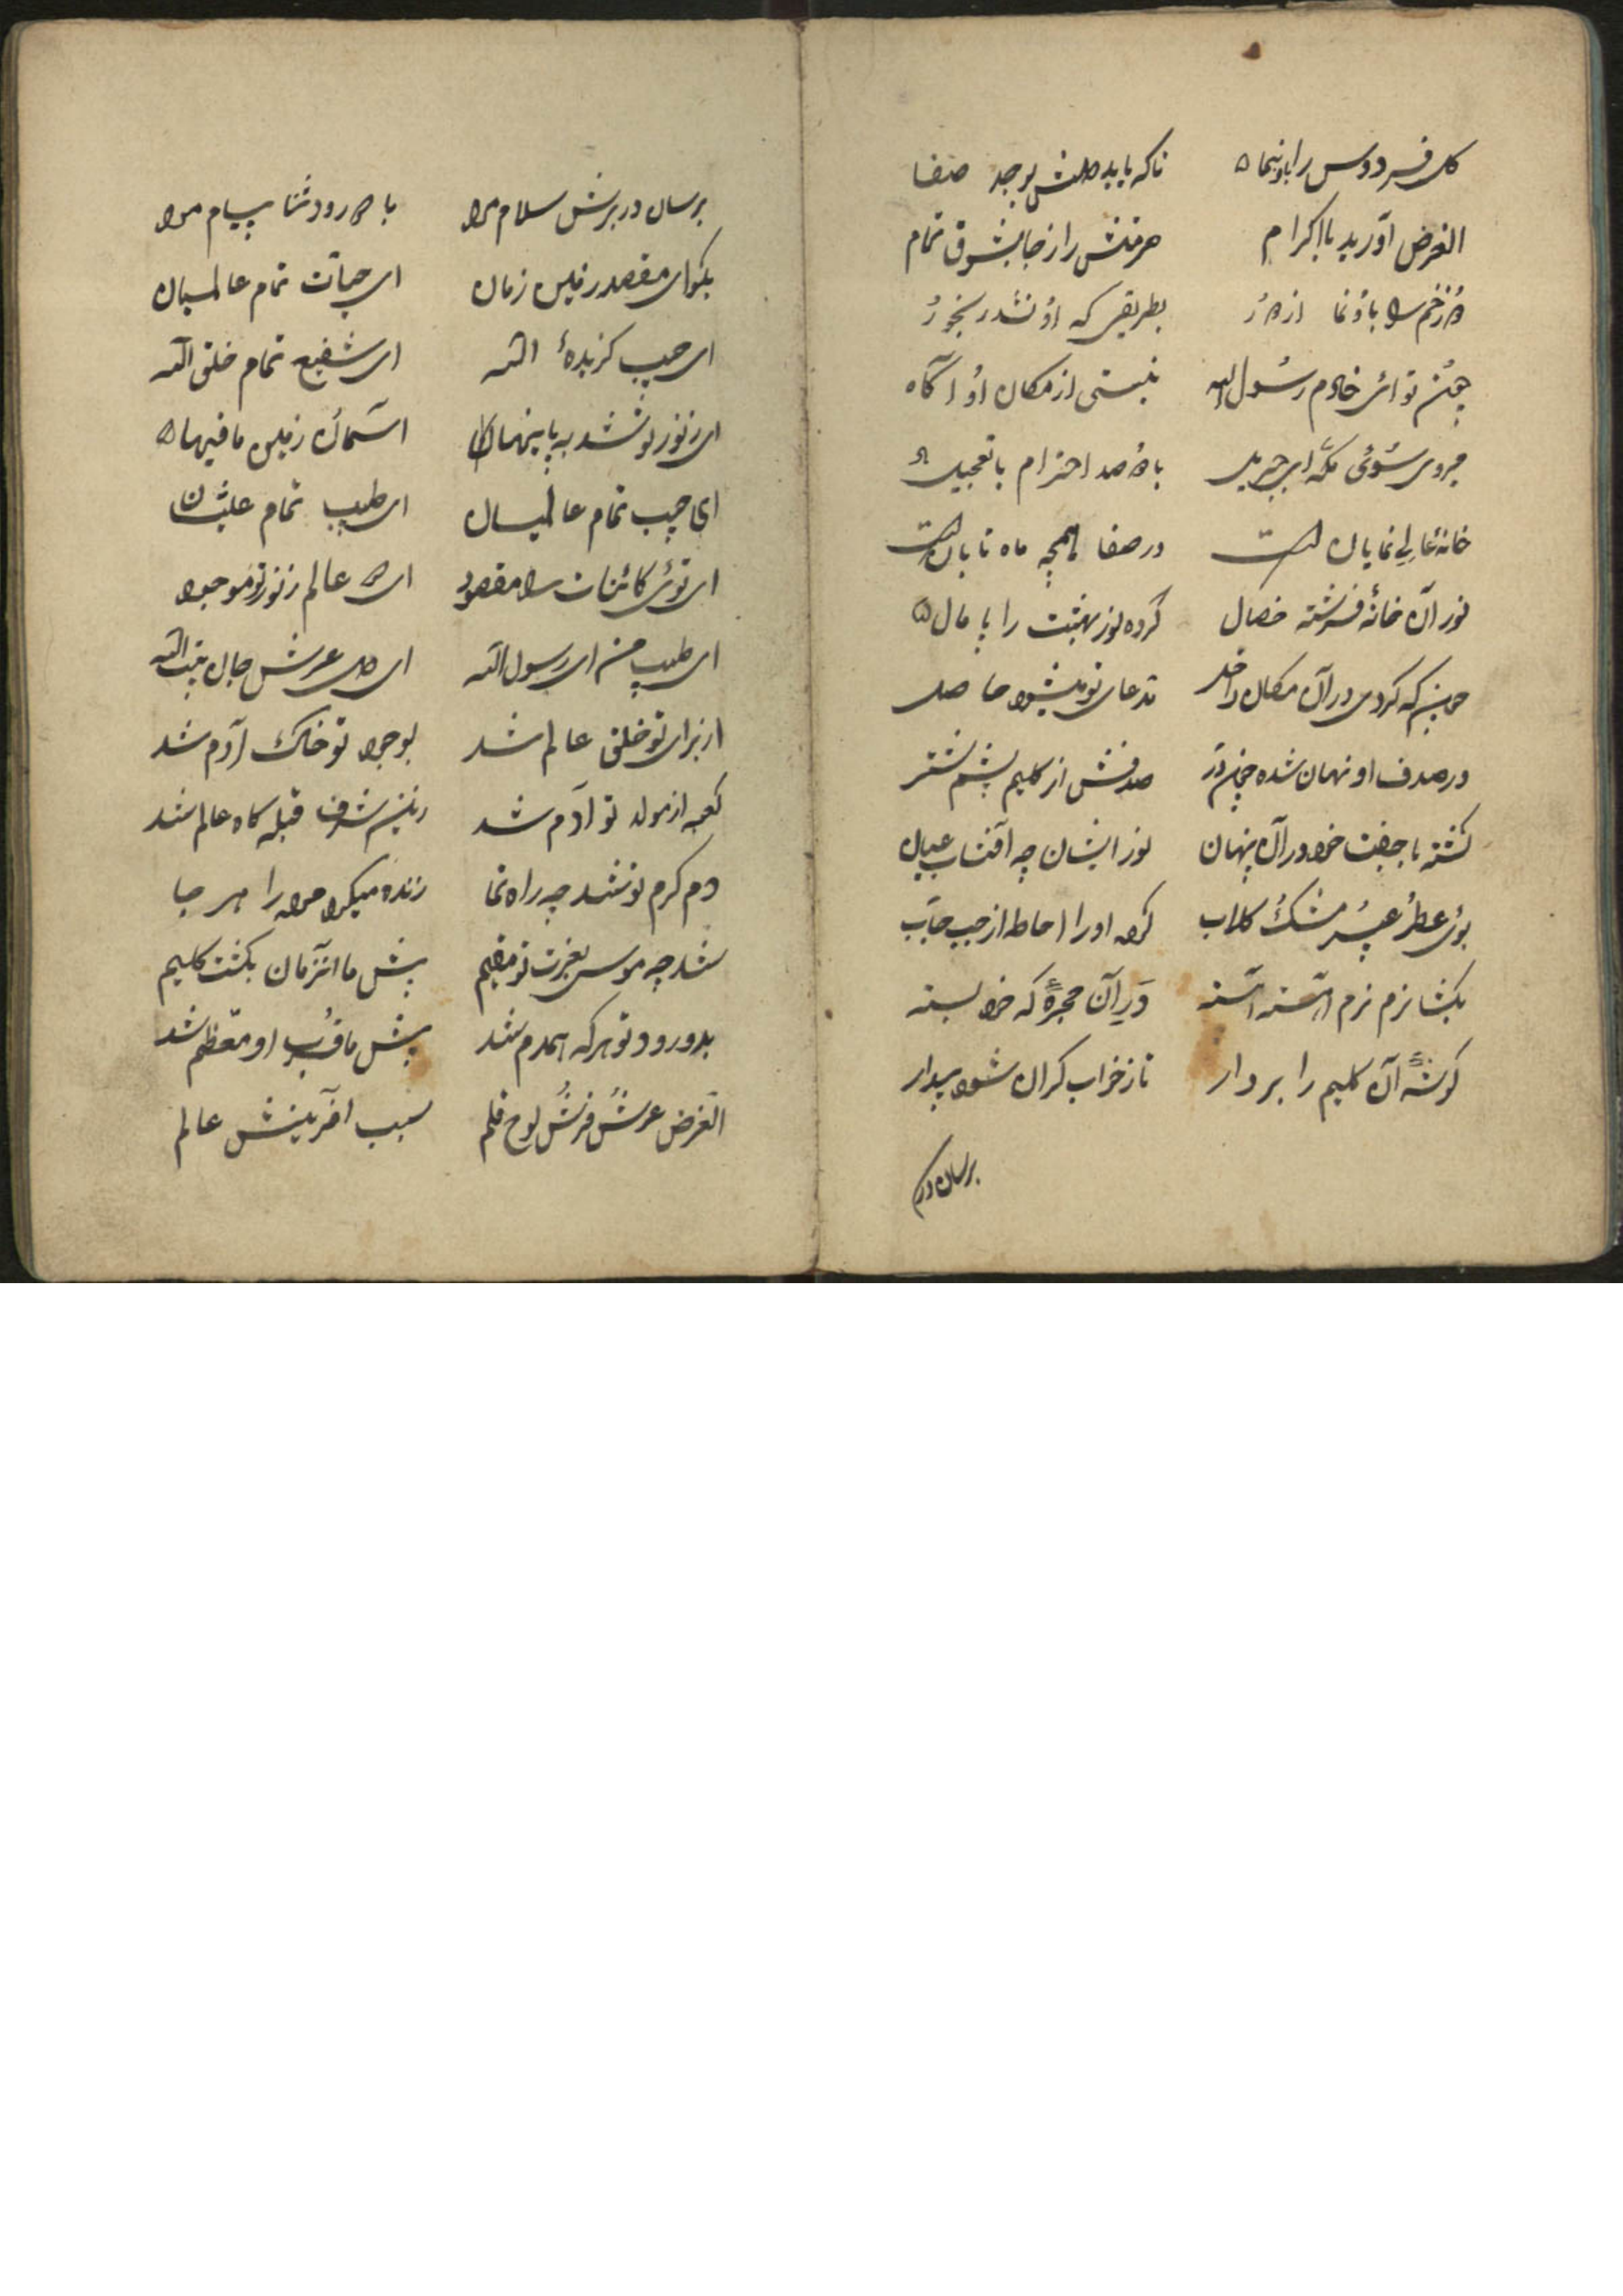 کل فردوس را باو بنما تا که یابد دلش بوجد صفا
الغرض آورید با اکرام حرمتش را ز جا بشوق تمام
دوزخم را باو نما از دور بطریقی که او نشد رنجور
چون توائی خادم رسول الله نیستی از مکان او آگاه
میروی سوئی مکه ای جبریل با دو صد احترام با تعجیل
خانهٔ عالی نمایان است در صفا همچه ماه تابان است
نور آن خانهٔ فرشته خصال کرده نور بهشت را پا مال
چونکه کردی در آن مکان داخل مدعای تو میشود حاصل
در صدف او نهان شده چون در صدفش از کلیم پشم شتر
کشته با جفت خود در آن پنهان نور ایشان چه آفتاب عیان
بوی عطر عبیر مشک کلاب کرده او را احاطه از حب حباب
بکشا نرم نرم آهسته آهسته در آن حجرهٔ که خود بسته
کوشهٔ آن کلیم را بردار تا ز خواب کران شود بیدار
برسان در
برسان در برش سلام مرا با درود ثنا پیام مرا
بکو ای مقصد زمین زمان ای حیات تمام عالمیان
ای حبیب کزیدهٔ الله ای شفیع تمام خلق الله
ای ز نور تو شد به پا پنهان آسمان زمین ما فیها
ای حبیب تمام عالمیان ای طبیب تمام
ای توئی کائنات را مقصود ای دو عالم ز نور تو موجود
ای طبیب من ای رسول الله ای دل عرش جان بیت الله
از برای تو خلق عالم شد بوجود تو خاک آدم شد
کعبه از مولد تو آدم شد زین شرف قبله کاه عالم شد
دم کرم تو شد چه راه نما زنده میکرد مرده را هر جا
شد چه موسی بعزت تو مقیم پیش ما آنزمان بکشت کلیم
بدورود تو هر که همدم شد پیش ما قرب او معظم شد
الغرض عرش فرش لوح قلم سبب آفرینش عالم